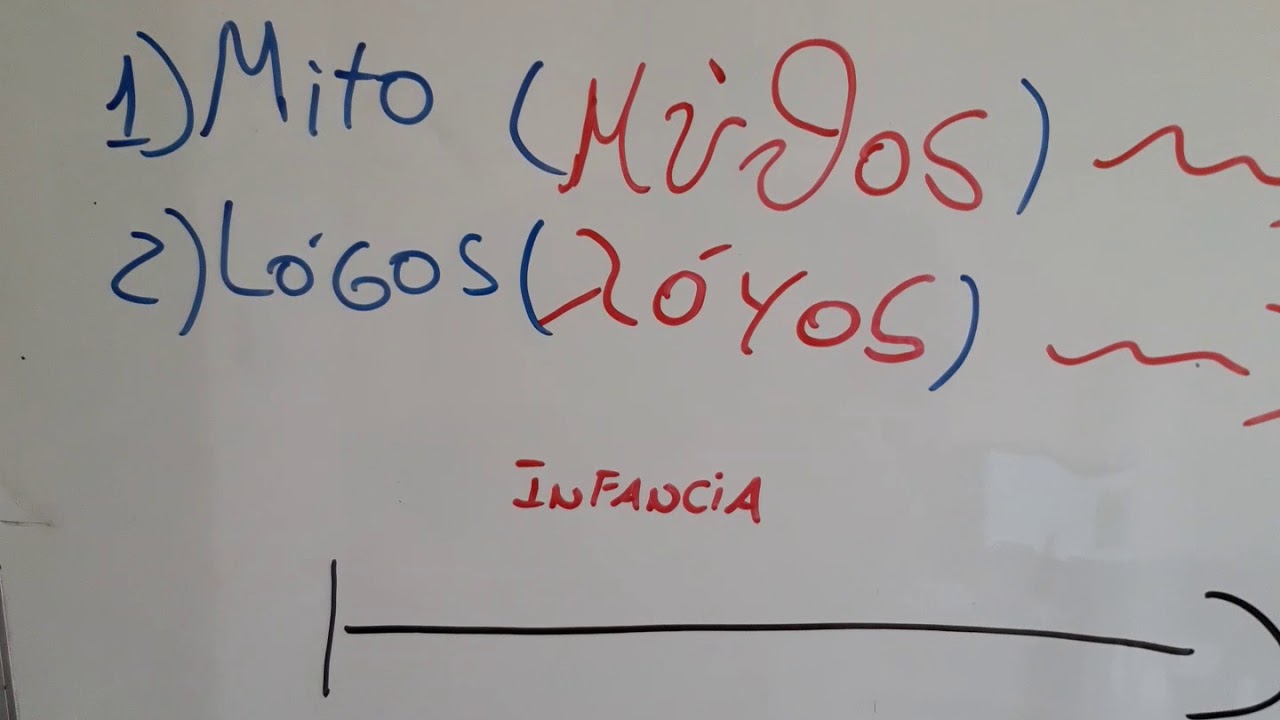 1) Mito (Μύθος)
2) LÓGOS (λόγος)
INFANCIA